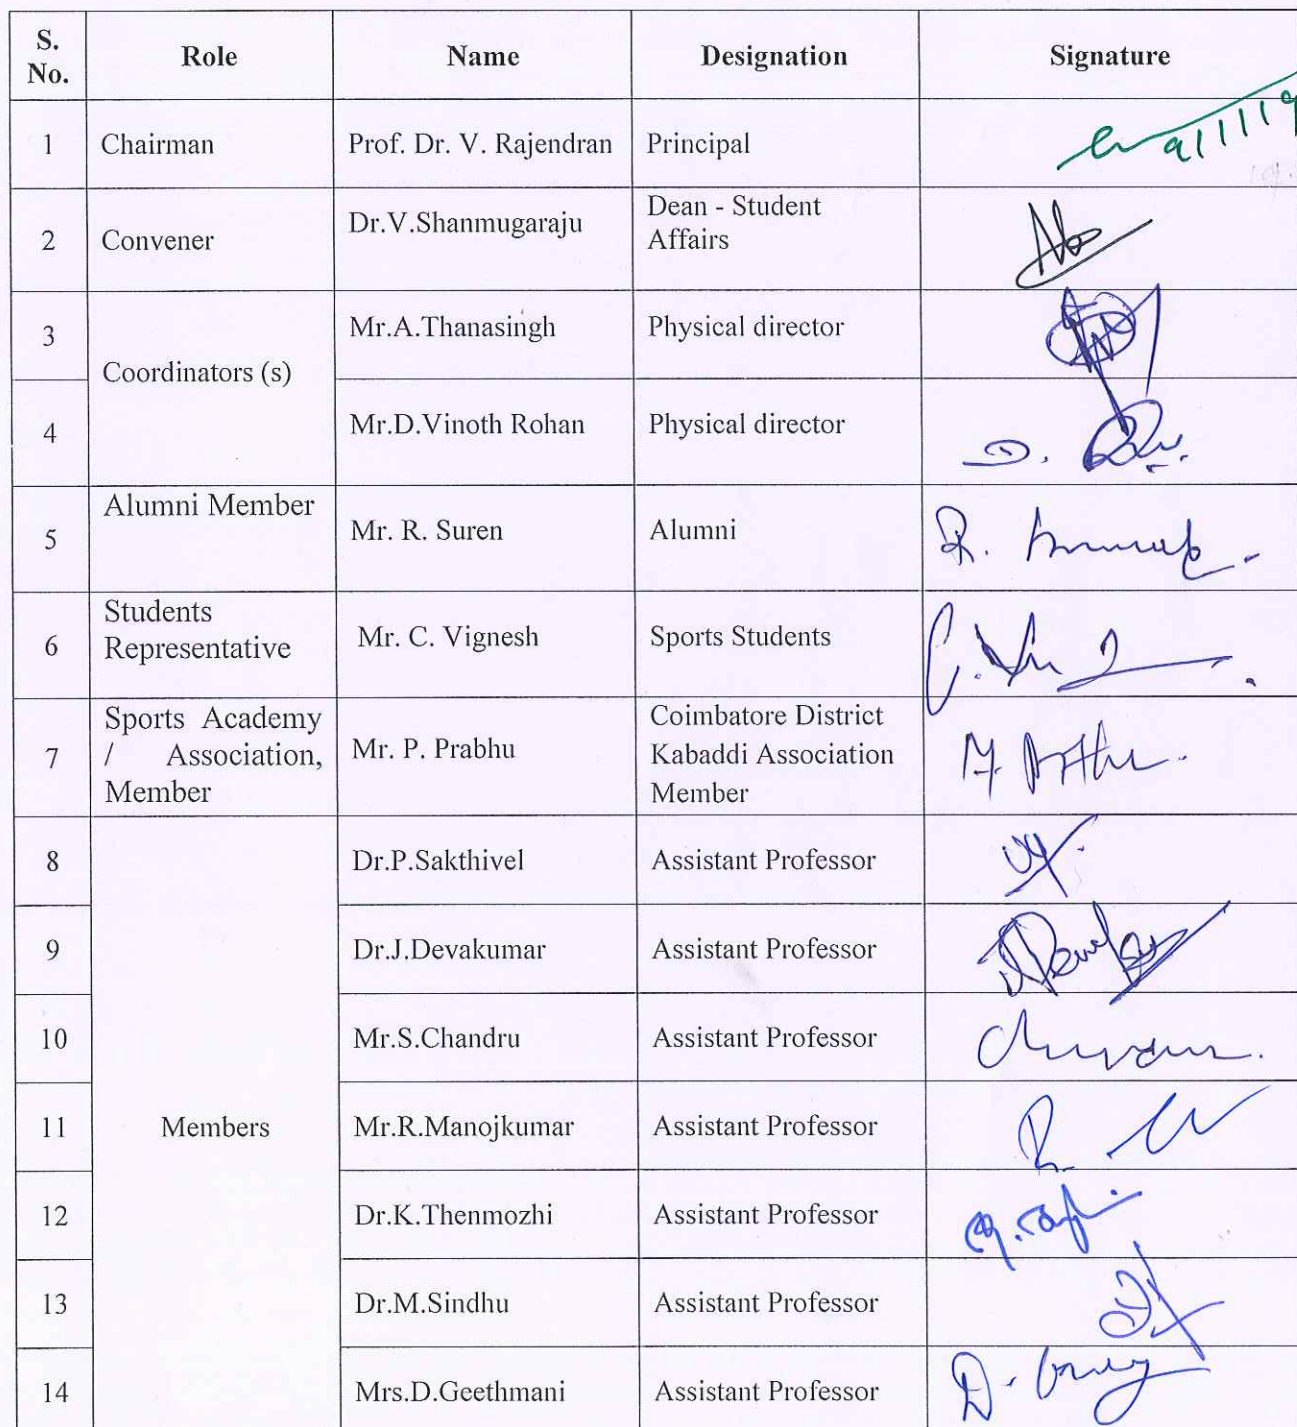 S. No. Role Name Designation Signature
1 Chairman Prof. Dr. V. Rajendran Principal 9/11/19
2 Convener Dr.V.Shanmugaraju Dean - Student
Affairs
3 Coordinators (s) Mr.A.Thanasingh Physical director
4 Mr.D.Vinoth Rohan Physical director D.
5 Alumni Member Mr. R. Suren Alumni R.
6 Students
Representative Mr. C. Vignesh Sports Students
7 Sports Academy
/ Association,
Member Mr. P. Prabhu Coimbatore District
Kabaddi Association
Member
8 Members Dr.P.Sakthivel Assistant Professor
9 Dr.J.Devakumar Assistant Professor
10 Mr.S.Chandru Assistant Professor
11 Mr.R.Manojkumar Assistant Professor
12 Dr.K.Thenmozhi Assistant Professor
13 Dr.M.Sindhu Assistant Professor
14 Mrs.D.Geethmani Assistant Professor D.